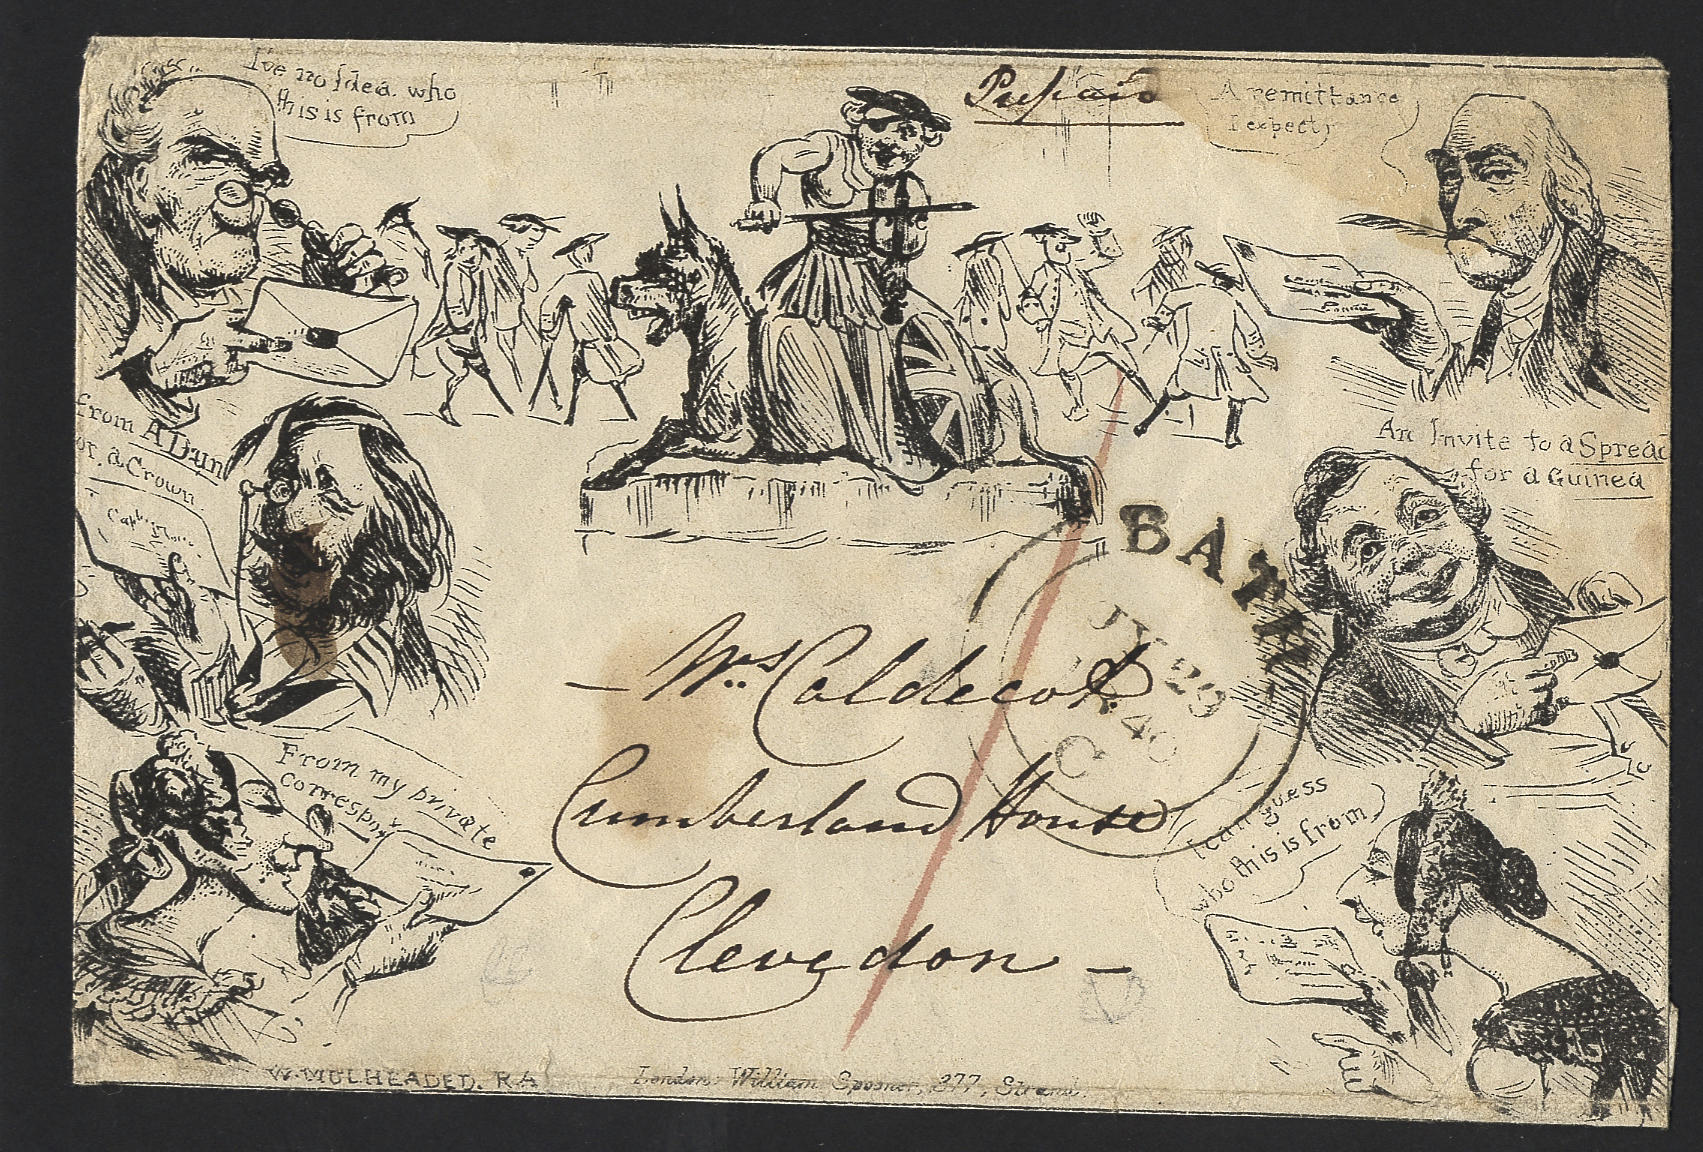 I've no Idea who
this is from
Prepaid
A remittance
I expect,
from A Dun
or a Crown
An Invite to a Spread
for a Guinea
BATH
JY 29
1840
C
Mrs. Caldecot
Cumberland House
Clevedon
From my private
correspnt
I can guess
who this is from
W. MULHEADED. R.A
London: William Spooner, 377, Strand.